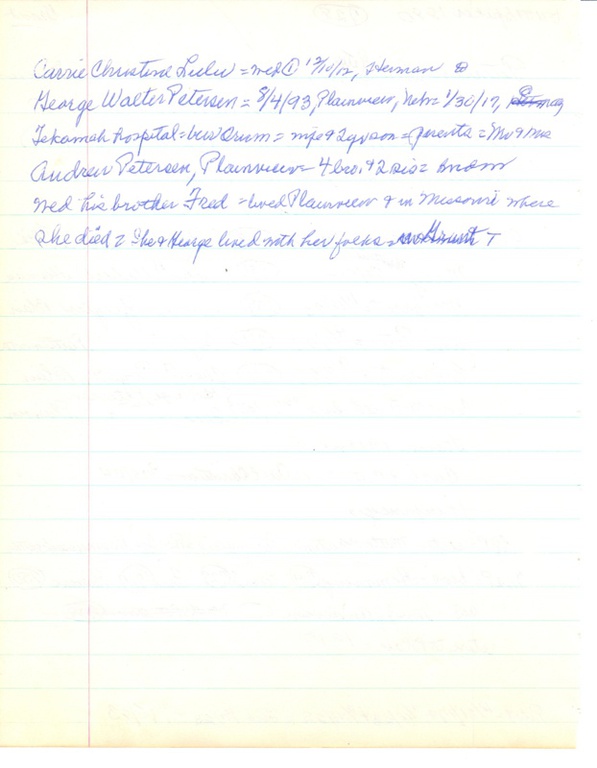 Carrie Christine Lulu = wed ① 12/10/12, Herman
George Walter Petersen = 8/4/93, Plainview, Neb = 1/30/17,
Tekamah hospital = bur Orum = wife & 2 yr son = parents = Mr & Mrs
Andrew Petersen, Plainview = 4 bro. & 2 sis =
wed his brother Fred = lived Plainview & in Missouri where
she died = She & George lived with her folks